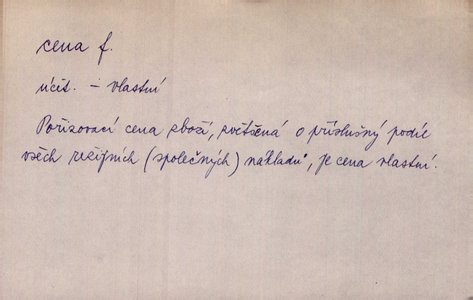 cena f.
účit. - vlastní
Pořizovací cena zboží, zvětšená o příslušný podíl
všech režijních (společných) nákladů, je cena vlastní.